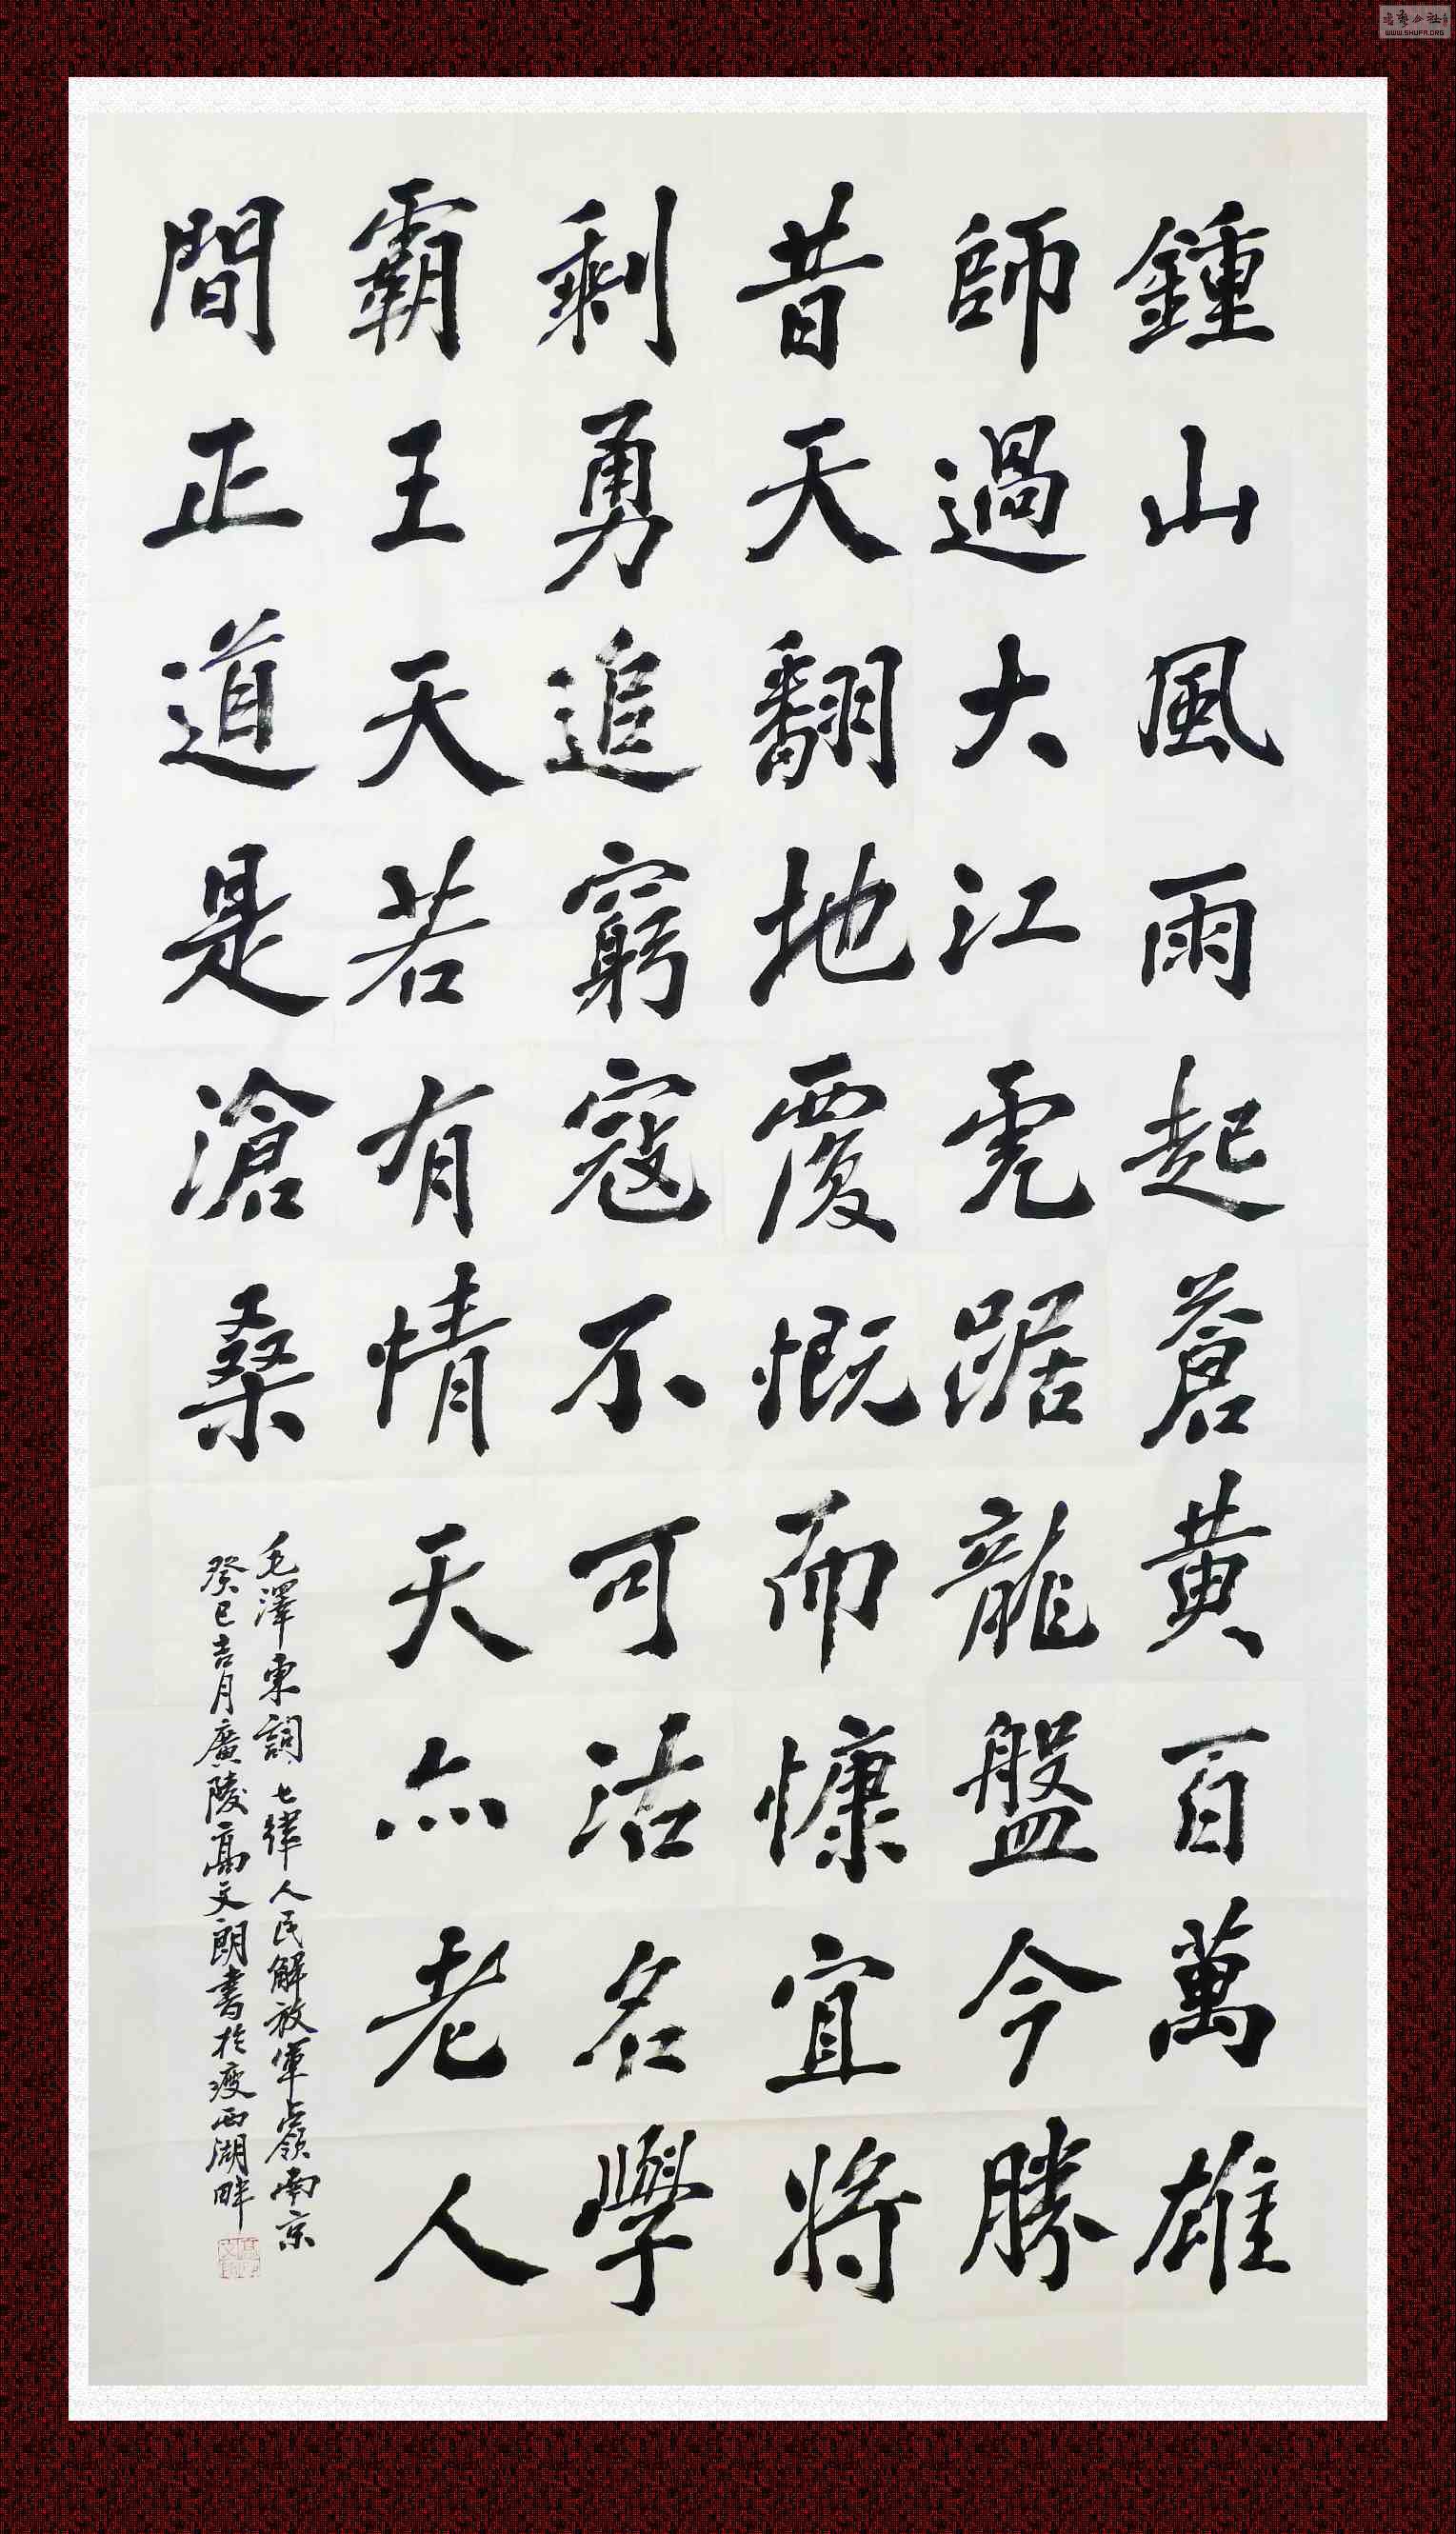 鍾山風雨起蒼黃百萬雄
師過大江虎踞龍盤今勝
昔天翻地覆慨而慷宜將
剩勇追窮寇不可沽名學
霸王天若有情天亦老人
間正道是滄桑
毛澤東詞七律人民解放軍占嶺南京
癸巳吉月廣陵高文朗書於瘦西湖畔
WWW.SHUFA.ORG